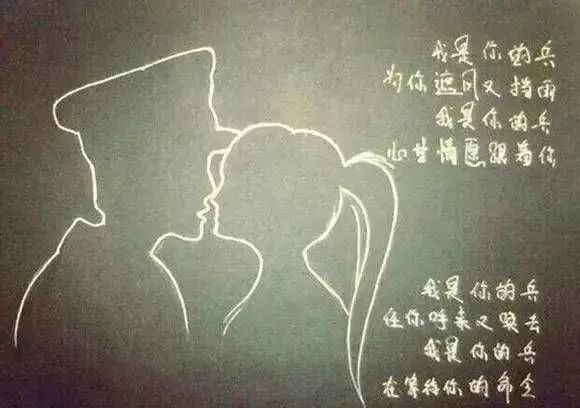 我是你的兵
为你遮风又挡雨
我是你的兵
心甘情愿跟着你
我是你的兵
任你呼来又唤去
我是你的兵
在等待你的命令